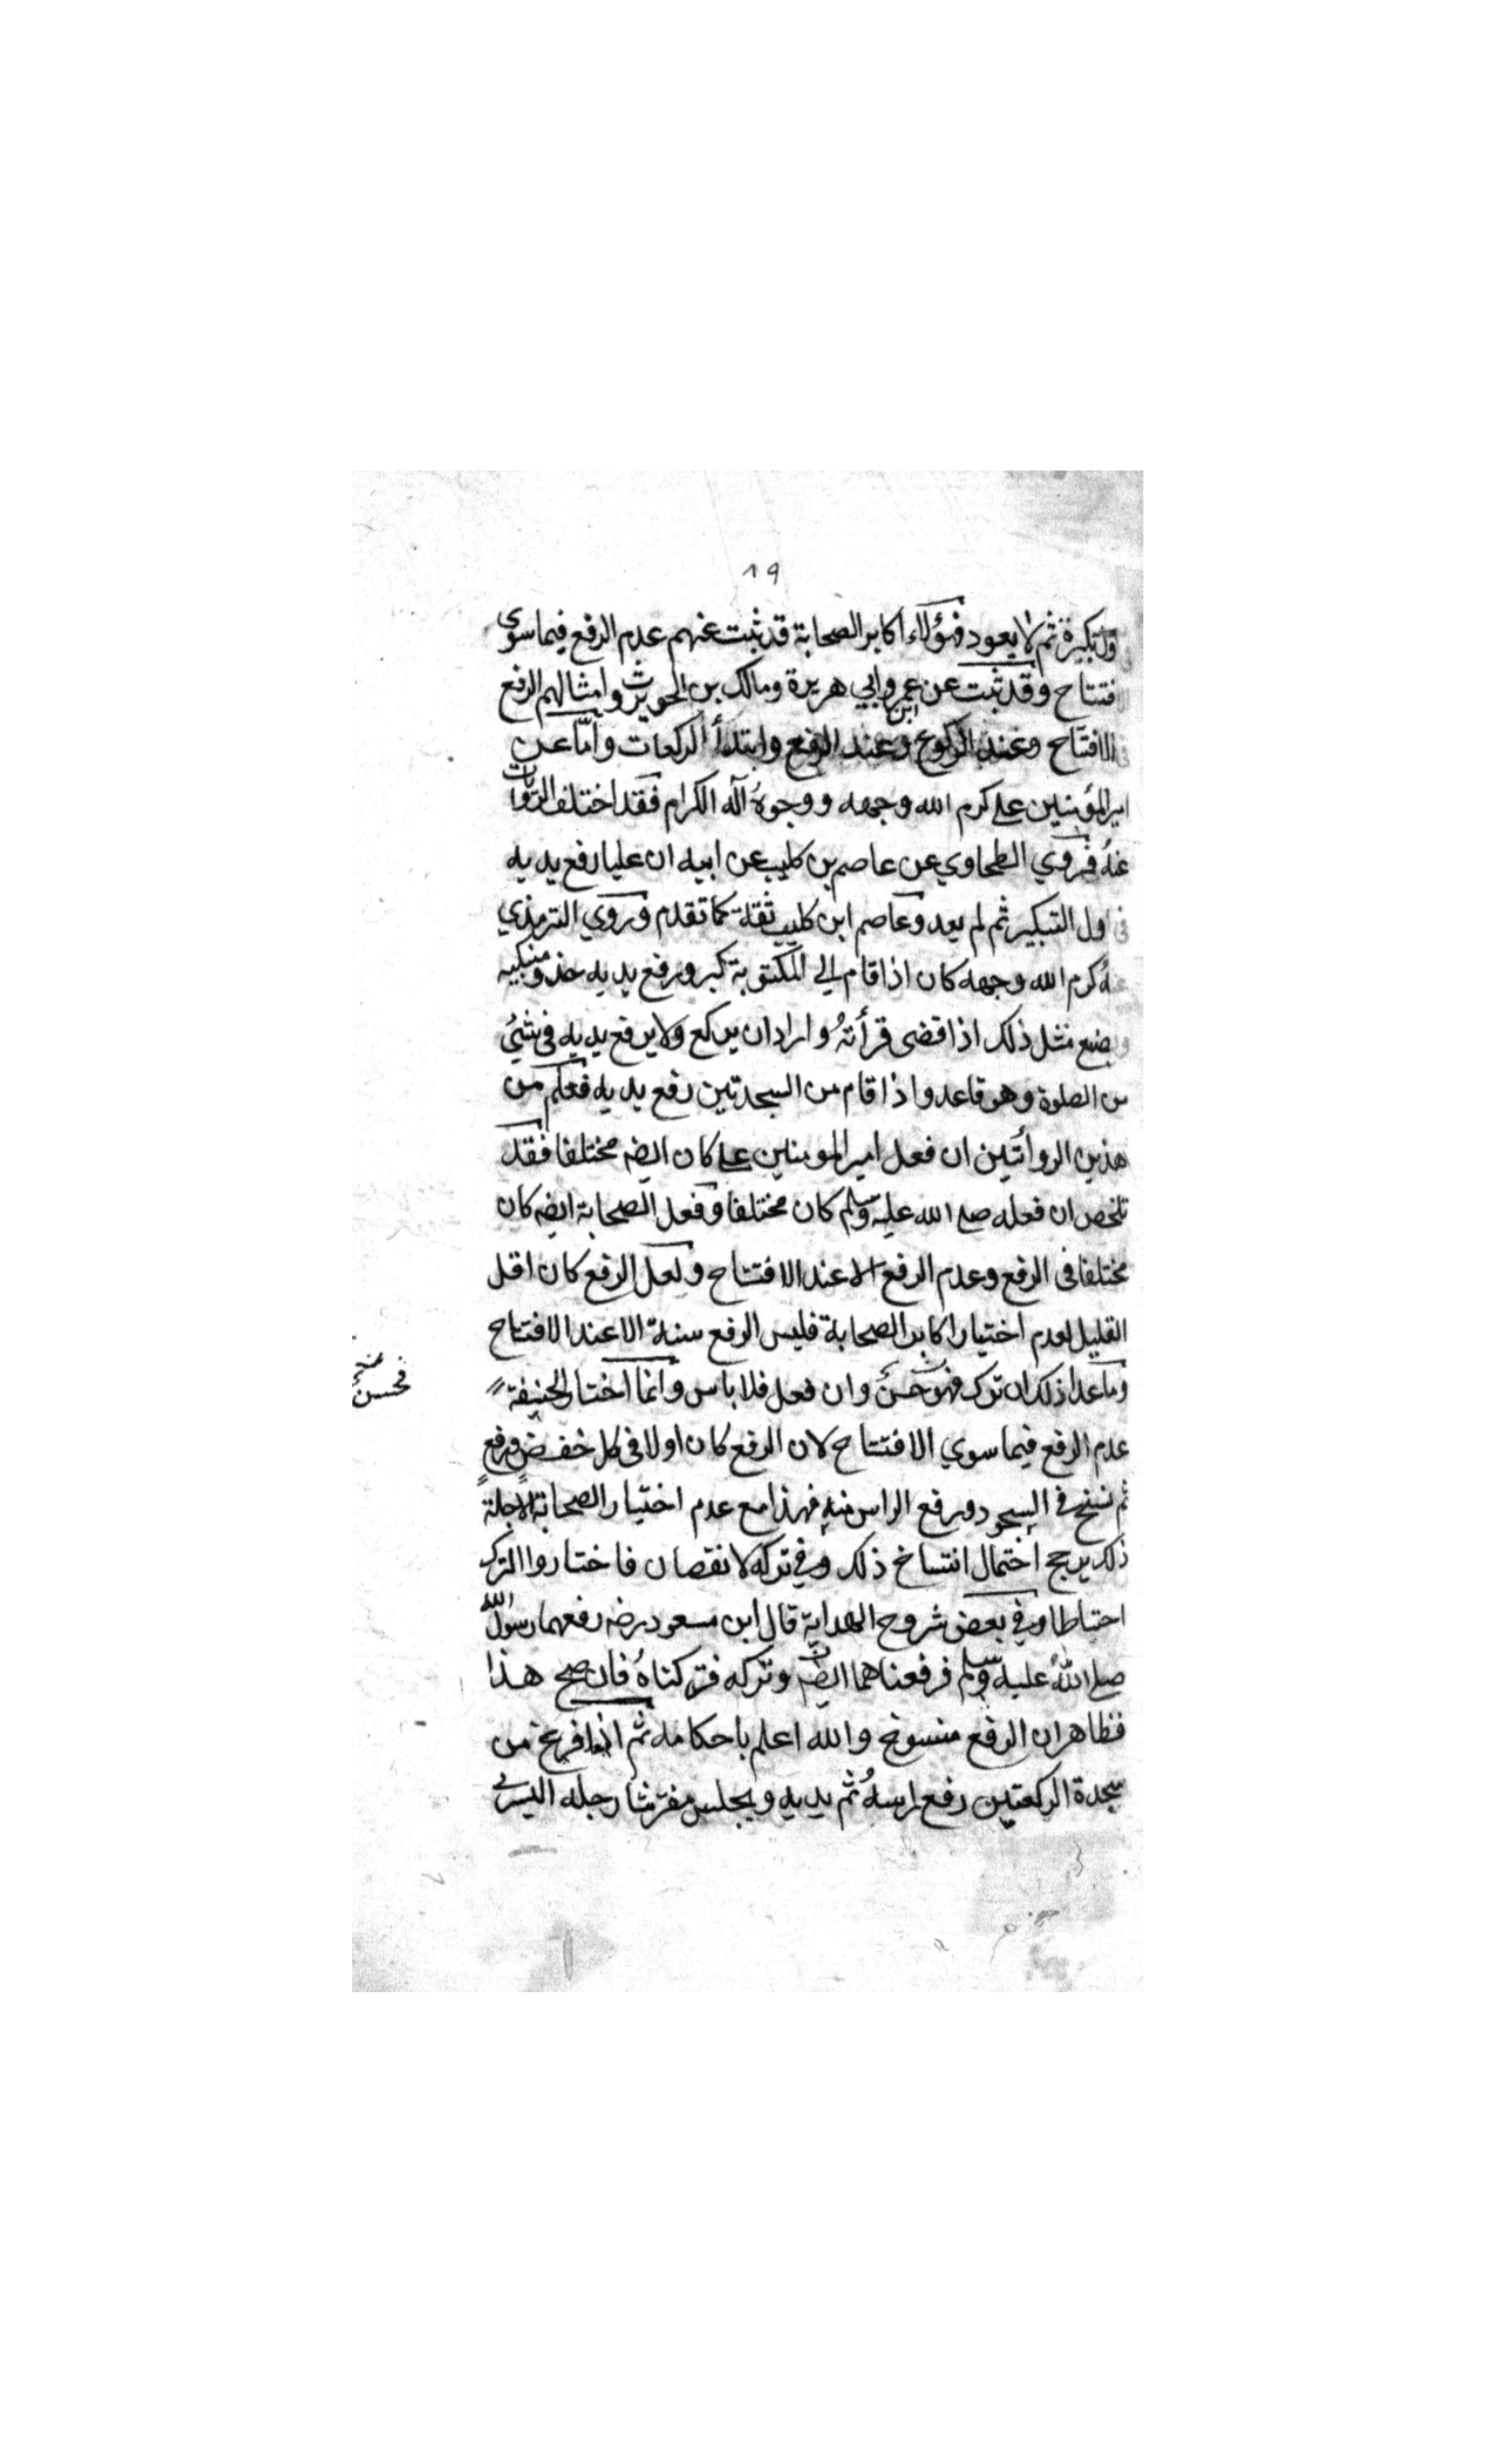 ١٩
ول تكبيرة ثم لا يعود فهؤلاء اكابر الصحابة قد ثبت عنهم عدم الرفع فيما سوى
فتتاح وقد ثبت عن ابن عمر وابي هريرة ومالك بن الحويرث وامثالهم الرفع
الافتتاح وعند الركوع وعند الرفع وابتدأ الركعات وامّا عن
امير المؤمنين علي كرم الله وجهه ووجوهُ آله الكرام فقد اختلف الروايات
عنهُ فروي الطحاوي عن عاصم بن كليب عن ابيه ان عليا رفع يديه
في اول التبكير ثم لم يعد وعاصم ابن كليب ثقة كما تقدم وروي الترمذي
هُ كرم الله وجهه كان اذا قام الي المكتوبة كبر ورفع يديه حذو منكبيه
ويصنع مثل ذلك اذا قضى قرأتهُ واراد ان يركع ولا يرفع يديه في شيئ
من الصلوة وهو قاعد واذا قام من السجدتين رفع يديه فعلم من
هذين الروائتين ان فعل امير المومنين علي كان ايضه مختلفا فقد
تلخص ان فعله صلع الله عليه وسلم كان مختلفا وفعل الصحابة ايضه كان
مختلفا في الرفع وعدم الرفع الا عند الافتتاح ولعل الرفع كان اقل
القليل لعدم اختيار اكابر الصحابة فليس الرفع سنة الا عند الافتتاح
وما عدا ذلك ان ترك فهو حسنٌ وان فعل فلا باس وانما اختار الحنيفة
فحسنٌ
عدم الرفع فيما سوي الافتتاح لان الرفع كان اولا في كل خفضٍ ورفعٍ
ثم نسخ في السجود ورفع الراس منه فهذا مع عدم اختيار الصحابة الاجلة
ذلك يرجح احتمال انتساخ ذلك وفي تركه لا نقصان فاختاروا الترك
احتياطا وفي بعض شروح الهداية قال ابن مسعود رضه رفعهما رسول الله
صلع اللهُ عليه وسلم فرفعناهما ايضه وتركه فتركناهُ فان صح هذا
فظاهر ان الرفع منسوخ والله اعلم باحكامه ثم اذا فرغ من
سجدة الركعتين رفع راسهُ ثم يديه ويجلس مفترشا رجله اليسرى